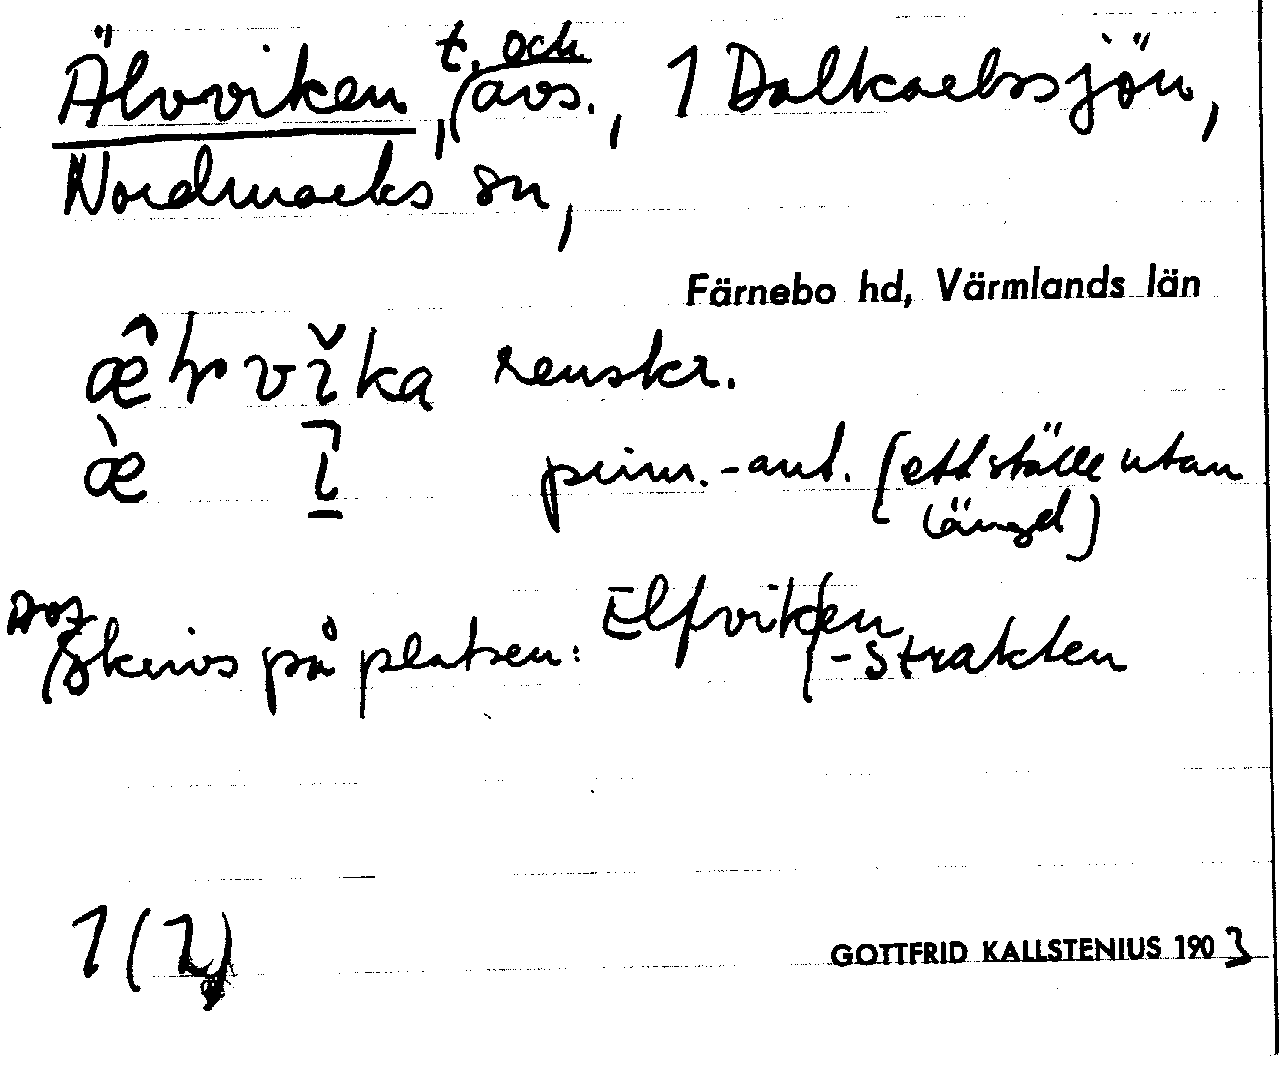 Älvviken, t. och avs., 1 Dalkarlssjön,
Nordmarks sn,
Färnebo hd, Värmlands län
vĭka renskr.
prim.-ant. (ett ställe utan
längd)
Avs
Skrivs på platsen: Elfviken
-strakten
1 (2)
GOTTFRID KALLSTENIUS 1903